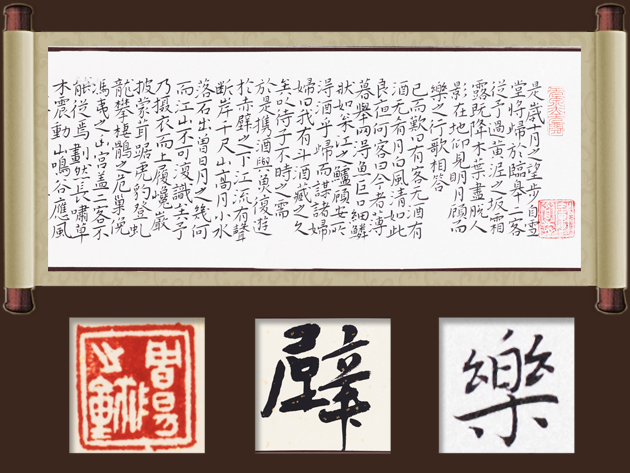 是歲十月之望步自雪
堂將歸於臨皋二客
從予過黃泥之坂霜
露既降木葉盡脫人
影在地仰見明月顧而
樂之行歌相答
已而歎曰有客无酒有
酒无肴月白風清如此
良夜何客曰今者薄
暮舉網得魚巨口細鱗
狀如松江之鱸顧安所
得酒乎歸而謀諸婦
婦曰我有斗酒藏之久
矣以待子不時之需
於是攜酒與魚復遊
於赤壁之下江流有聲
斷岸千尺山高月小水
落石出曾日月之幾何
而江山不可復識矣予
乃攝衣而上履巉巖
披蒙茸踞虎豹登虬
龍攀棲鶻之危巢俯
馮夷之幽宮蓋二客不
能從焉劃然長嘯草
木震動山鳴谷應風
壁
樂